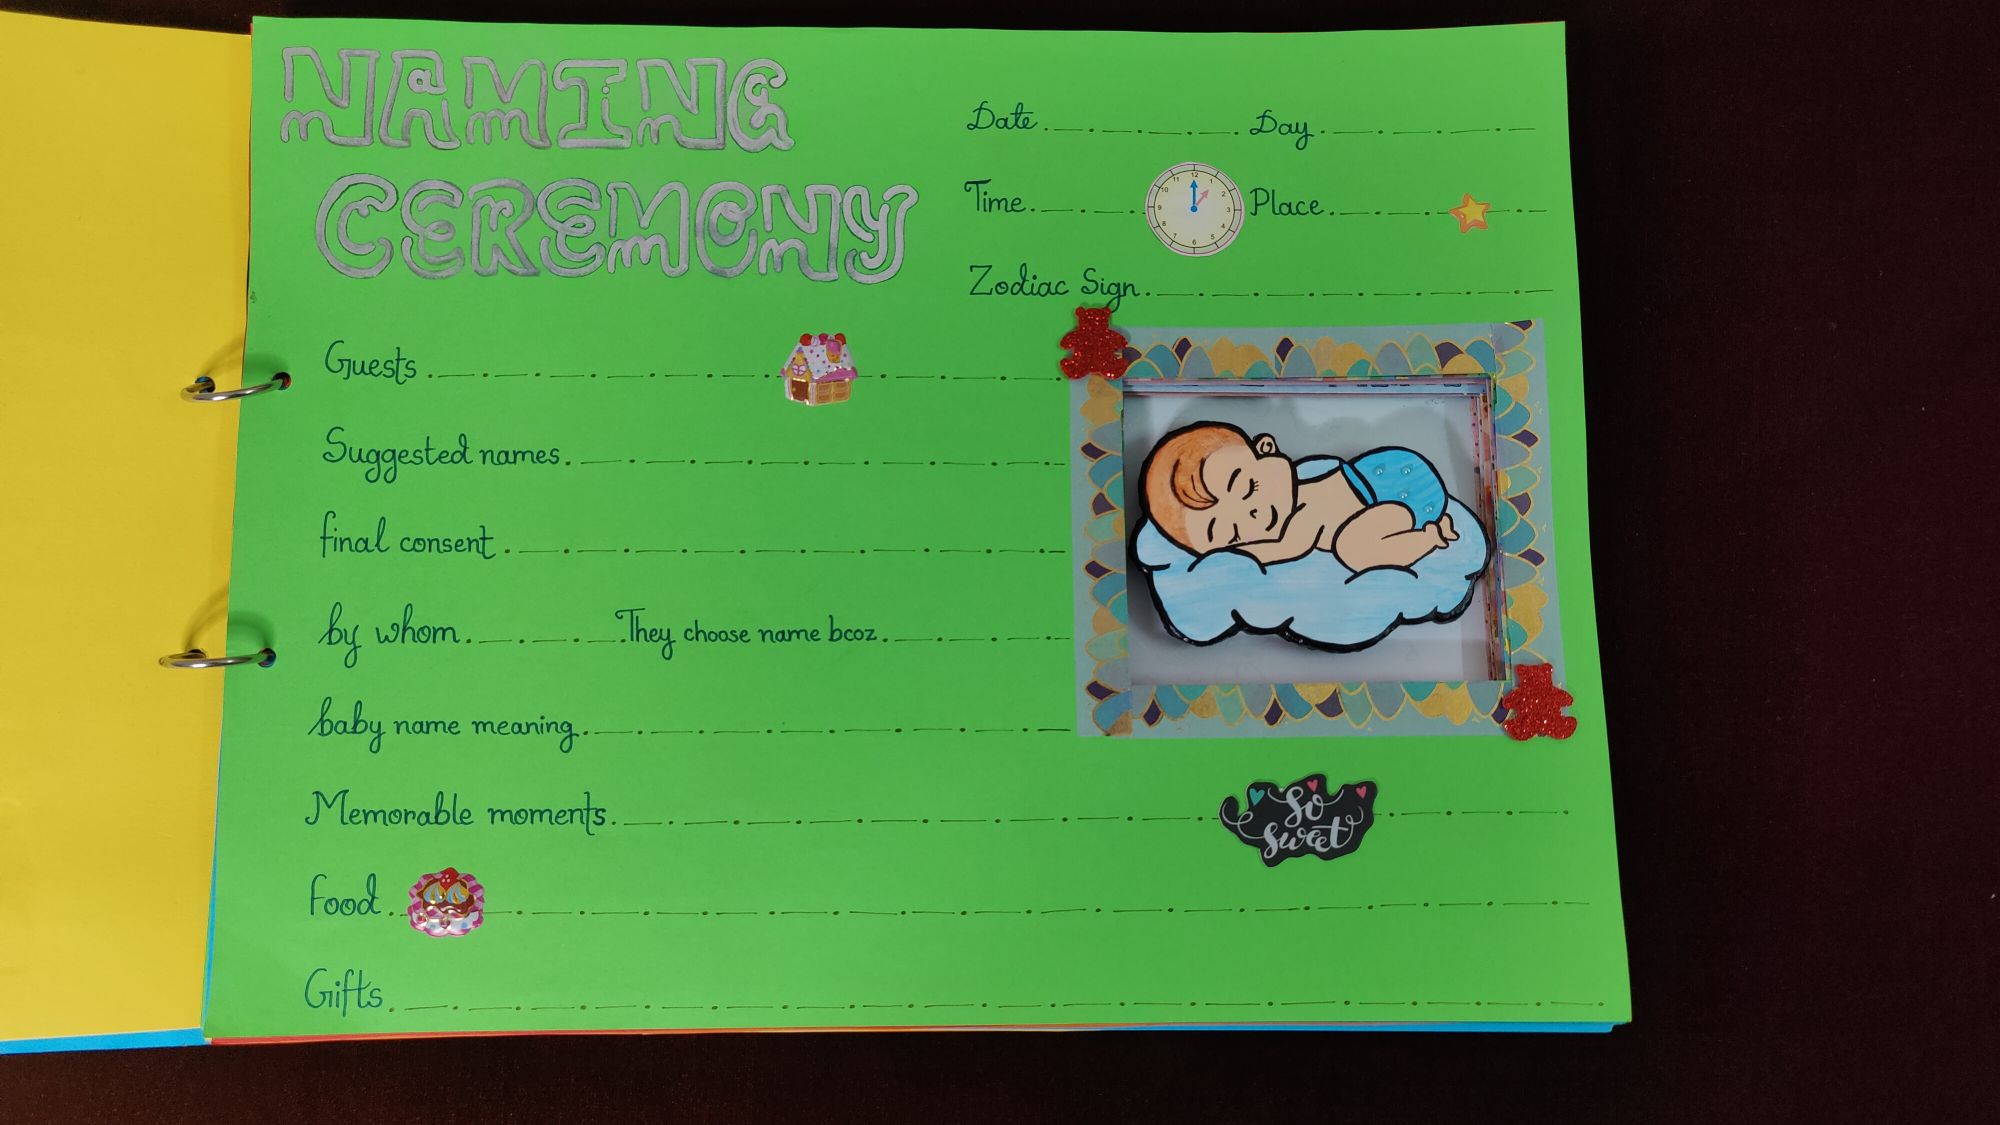 NAMING
CEREMONY
Date Day
Time 12 1 2 3 4 5 6 7 8 9 10 11 Place
Zodiac Sign
Guests
Suggested names
final consent
by whom They choose name bcoz
baby name meaning
Memorable moments
So
Sweet
Food
Gifts